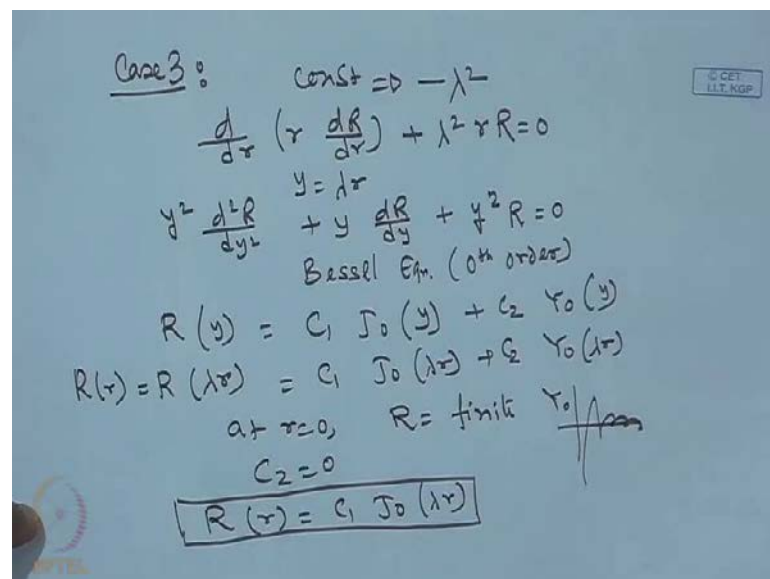 Case 3 : const => -λ²
© CET
I.I.T. KGP
d/dr (r dR/dr) + λ² r R = 0
y = λr
y² d²R/dy² + y dR/dy + y² R = 0
Bessel Eqn. (0th order)
R (y) = C₁ J₀ (y) + C₂ Y₀ (y)
R(r) = R (λr) = C₁ J₀ (λr) + C₂ Y₀ (λr)
at r=0, R = finite Y₀
C₂ = 0
R (r) = C₁ J₀ (λr)
NPTEL